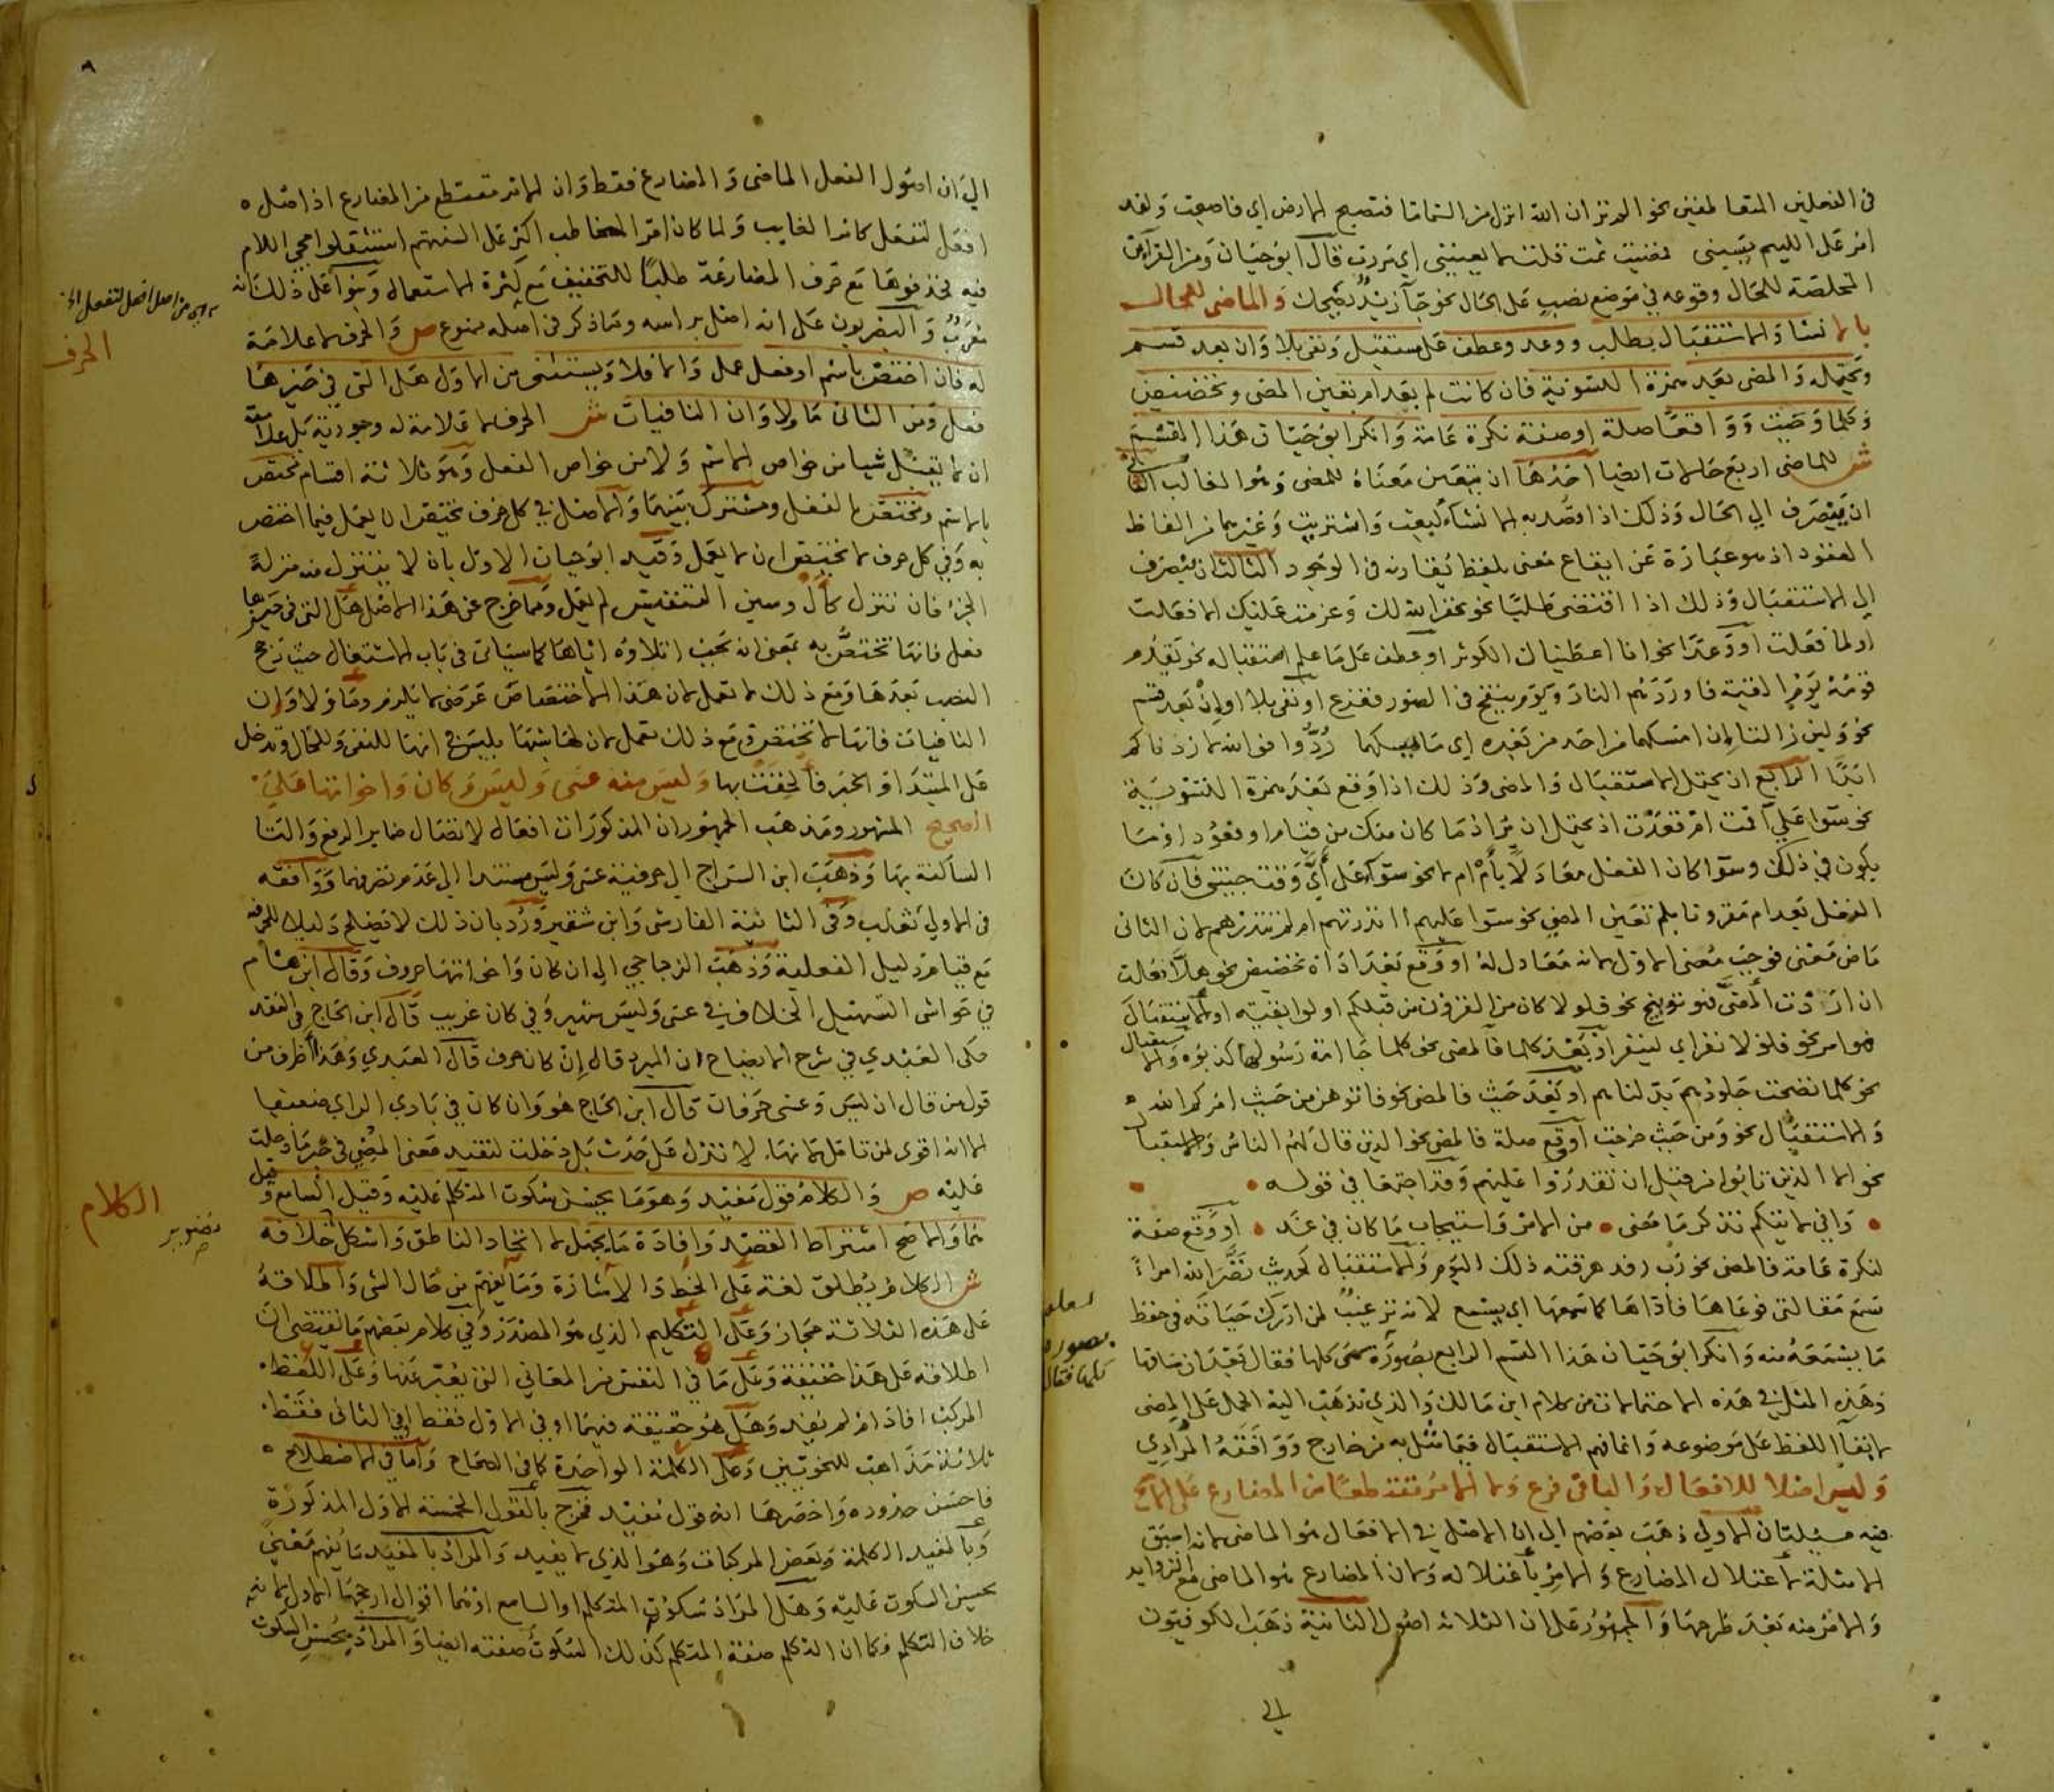 في الفعلين المتعاطفين نحو الم تر ان الله انزل من السماء ماء فتصبح الارض اي فاصبحت ولقد
امر على اللئيم يسبني فمضيت ثمت قلت لا يعنيني اي مررت قال ابو حيان ومن القرائن
المخلصة للحال وقوعه في موضع نصب على الحال نحو جا زيد يضحك والماضي للحال
بالانشا والاستقبال بطلب ووعد وعطف على مستقبل ونفي بلا وان بعد قسم
ويحتمله والمضي بعد همزة التسوية فان كانت لم بعد ام تعين المضي وتخصيص
وكلما وحيث ووافعا صلة او صفة نكرة عامة وانكر ابو حيان هذا القسم
ش للماضي اربع حالات ايضا احدها ان يتعين معناه للمضي وهو الغالب الثاني
ان ينصرف الي الحال وذلك اذا قصد به الانشاء كبعت واشتريت وغيرهما من الفاظ
العقود اذ هو عبارة عن ايقاع معنى بلفظ يقارنه في الوجود الثالث ان ينصرف
الي الاستقبال وذلك اذا اقتضى طلبا نحو غفر الله لك وعزمت عليك الا فعلت
او لما فعلت او وعدا نحو انا اعطيناك الكوثر او عطف على ما علم استقباله نحو يقدم
قومه يوم القيمة فاوردهم النار ويوم ينفخ في الصور ففزع او نفي بلا او ان بعد قسم
نحو ولئن زالتا ان امسكهما من احد من بعده اي ما يمسكهما ردوا فوالله لا زدناكم
ابدا الرابع ان يحتمل الاستقبال والمضي وذلك اذا وقع بعد همزة التسوية
نحو سوا علي اقمت ام قعدت اذ يحتمل ان يراد ما كان منك من قيام او قعود او ما
يكون في ذلك وسوا كان الفعل معادلا بام ام لا نحو سواء على اي وقت جئتني فان كان
الفعل بعد ام مقرونا بلم تعين المضي نحو سوا عليهم اانذرتهم ام لم تنذرهم لان الثاني
ماض معنى فوجب مضي الاول لانه معادل له او وقع بعد اداة تخصيص نحو هلا فعلت
ان اردت المضي فهو توبيخ نحو فلولا كان من القرون من قبلكم اولوا بقية او الاستقبال
فهو امر نحو فلولا نفر اي لينفر او بعد كلما فالمضي نحو كلما جا امة رسولها كذبوه والاستقبال
نحو كلما نضجت جلودهم بدلناهم او بعد حيث فالمضي نحو فاتوهن من حيث امركم الله
والاستقبال نحو ومن حيث خرجت او وقع صلة فالمضي نحو الذين قال لهم الناس والاستقبال
نحو الا الذين تابوا من قبل ان تقدروا عليهم وقد اجتمعا في قوله
واني لاتيكم تذكر ما مضى من الامر واستيجاب ما كان في غد او وقع صفة
لنكرة عامة فالمضي نحو رب رفد هرقته ذلك اليوم والاستقبال كحديث نضر الله امرا
سمع مقالتي فوعاها فاداها كما سمعها اي يسمع لانه ترغيب لمن ادرك حياته في حفظ
ما يسمعه منه وانكر ابو حيان هذا القسم الرابع بصورة كلها فقال بعد ان ساقها
وهذه المثل في هذه الاحتمالات من كلام ابن مالك والذي نذهب اليه الحمل على المضي
لابقا اللفظ على موضوعه وانما فهم الاستقبال فيما مثل به من خارج ووافقه المرادي
وليس اصلا للافعال والباقي فرع ولا الامر مقتطعا من المضارع على الاصح
فيه مسئلتان الاولي ذهب بعضهم الي ان الاصل في الافعال هو الماضي لانه اسبق
الامثلة لاعتلال المضارع والامر باعتلاله ولان المضارع هو الماضي مع الزوايد
والامر منه بعد طرحها والجمهور على ان الثلاثة اصول الثانية ذهب الكوفيون
الي
لعله
بصوره
كلها فقال
٨
الي ان اصول الفعل الماضي والمضارع فقط وان الامر مقتطع من المضارع اذ اصل
افعل لتفعل كامر الغايب ولما كان امر المخاطب اكثر على السنتهم استثقلوا مجي اللام
فيه فحذفوها مع حرف المضارعة طلبا للتخفيف مع كثرة الاستعمال وبنوا على ذلك انه
معرب والبصريون على انه اصل براسه وما ذكر في اصله ممنوع ص والحرف لا علامة
له فان اختص باسم او فعل عمل والا فلا ويستثنى من الاول هل التي في حيزها
فعل ومن الثاني ما ولا وان النافيات ش الحرف لا علامة له وجودية بل علامته
ان لا يقبل شيا من خواص الاسم ولا من خواص الفعل وهو ثلاثة اقسام مختص
بالاسم ومختص بالفعل ومشترك بينهما والاصل في كل حرف يختص ان يعمل فيما اختص
به وفي كل حرف لا يختص ان لا يعمل وقيد ابو حيان الاول بان لا يتنزل منه منزلة
الجزء فان تنزل كال وسين التنفيس لم يعمل ومما خرج عن هذا الاصل هل التي في حيزها
فعل فانها تختص به بمعنى انه يجب ايلاؤه اياها كما سياتي في باب الاشتغال حيث رجح
النصب بعدها ومع ذلك لا تعمل لان هذا الاختصاص عرضي لا يلزم وما ولا وان
النافيات فانها لا تختص ومع ذلك تعمل لان لها شبها بليس في انها للنفي وللحال وتدخل
على المبتدا والخبر فالحقت بها وليس منه عسى وليس وكان واخواتها على
الصحيح المشهور ومذهب الجمهور ان المذكورات افعال لاتصال ضماير الرفع والتا
الساكنة بها وذهب ابن السراج الي حرفية عسى وليس مستندا الي عدم تصرفهما ووافقه
في الاولي ثعلب وفي الثانية الفارسي وابن شقير ورد بان ذلك لا يصلح دليلا للحرفية
مع قيام دليل الفعلية وذهب الزجاجي الي ان كان واخواتها حروف وقال ابن هشام
في حواشي التسهيل الخلاف في عسى وليس شهير وفي كان غريب قال ابن الحاج في النقد
حكى العبدي في شرح الايضاح ان المبرد قال ان كان حرف قال العبدي وهذا اظرف من
قول من قال ان ليس وعسى حرفان قال ابن الحاج هو وان كان في بادي الراي ضعيفا
الا انه اقوى لمن تامل لانها لا تدل على حدث بل دخلت لتفيد معنى المضي في خبر ما دخلت
عليه ص والكلام قول مفيد وهو ما يحسن سكوت المتكلم عليه وقيل السامع وقيل
هما والاصح اشتراط القصد وافادة ما يجهل لا اتحاد الناطق واشكل خلافه
ش الكلام يطلق لغة على الخط والاشارة وما يفهم من حال الشي واطلاقه
على هذه الثلاثة مجاز وعلى التكليم الذي هو المصدر وفي كلام بعضهم ما يقتضي ان
اطلاقه على هذا حقيقة وعلى ما في النفس من المعاني التي يعبر عنها وعلى اللفظ
المركب افاد ام لم يفد وهل هو حقيقة فيهما او في الاول فقط او في الثاني فقط
ثلاثة مذاهب للنحويين وعلى الكلمة الواحدة كما في الصحاح واما في الاصطلاح
فاحسن حدوده واخصرها انه قول مفيد فخرج بالقول الخمسة الاول المذكورة
وبالمفيد الكلمة وبعض المركبات وهو الذي لا يفيد والمراد بالمفيد ما يفهم معنى
يحسن السكوت عليه وهل المراد سكوت المتكلم او السامع او هما اقوال ارجحها الاول لانه
خلاف التكلم فكما ان التكلم صفة المتكلم كذلك السكوت صفته ايضا والمراد بحسن السكوت
الحرف
الكلام